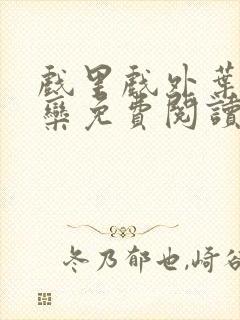 戲里戲外葉
欒免費閱讀
冬乃郁也,崎谷